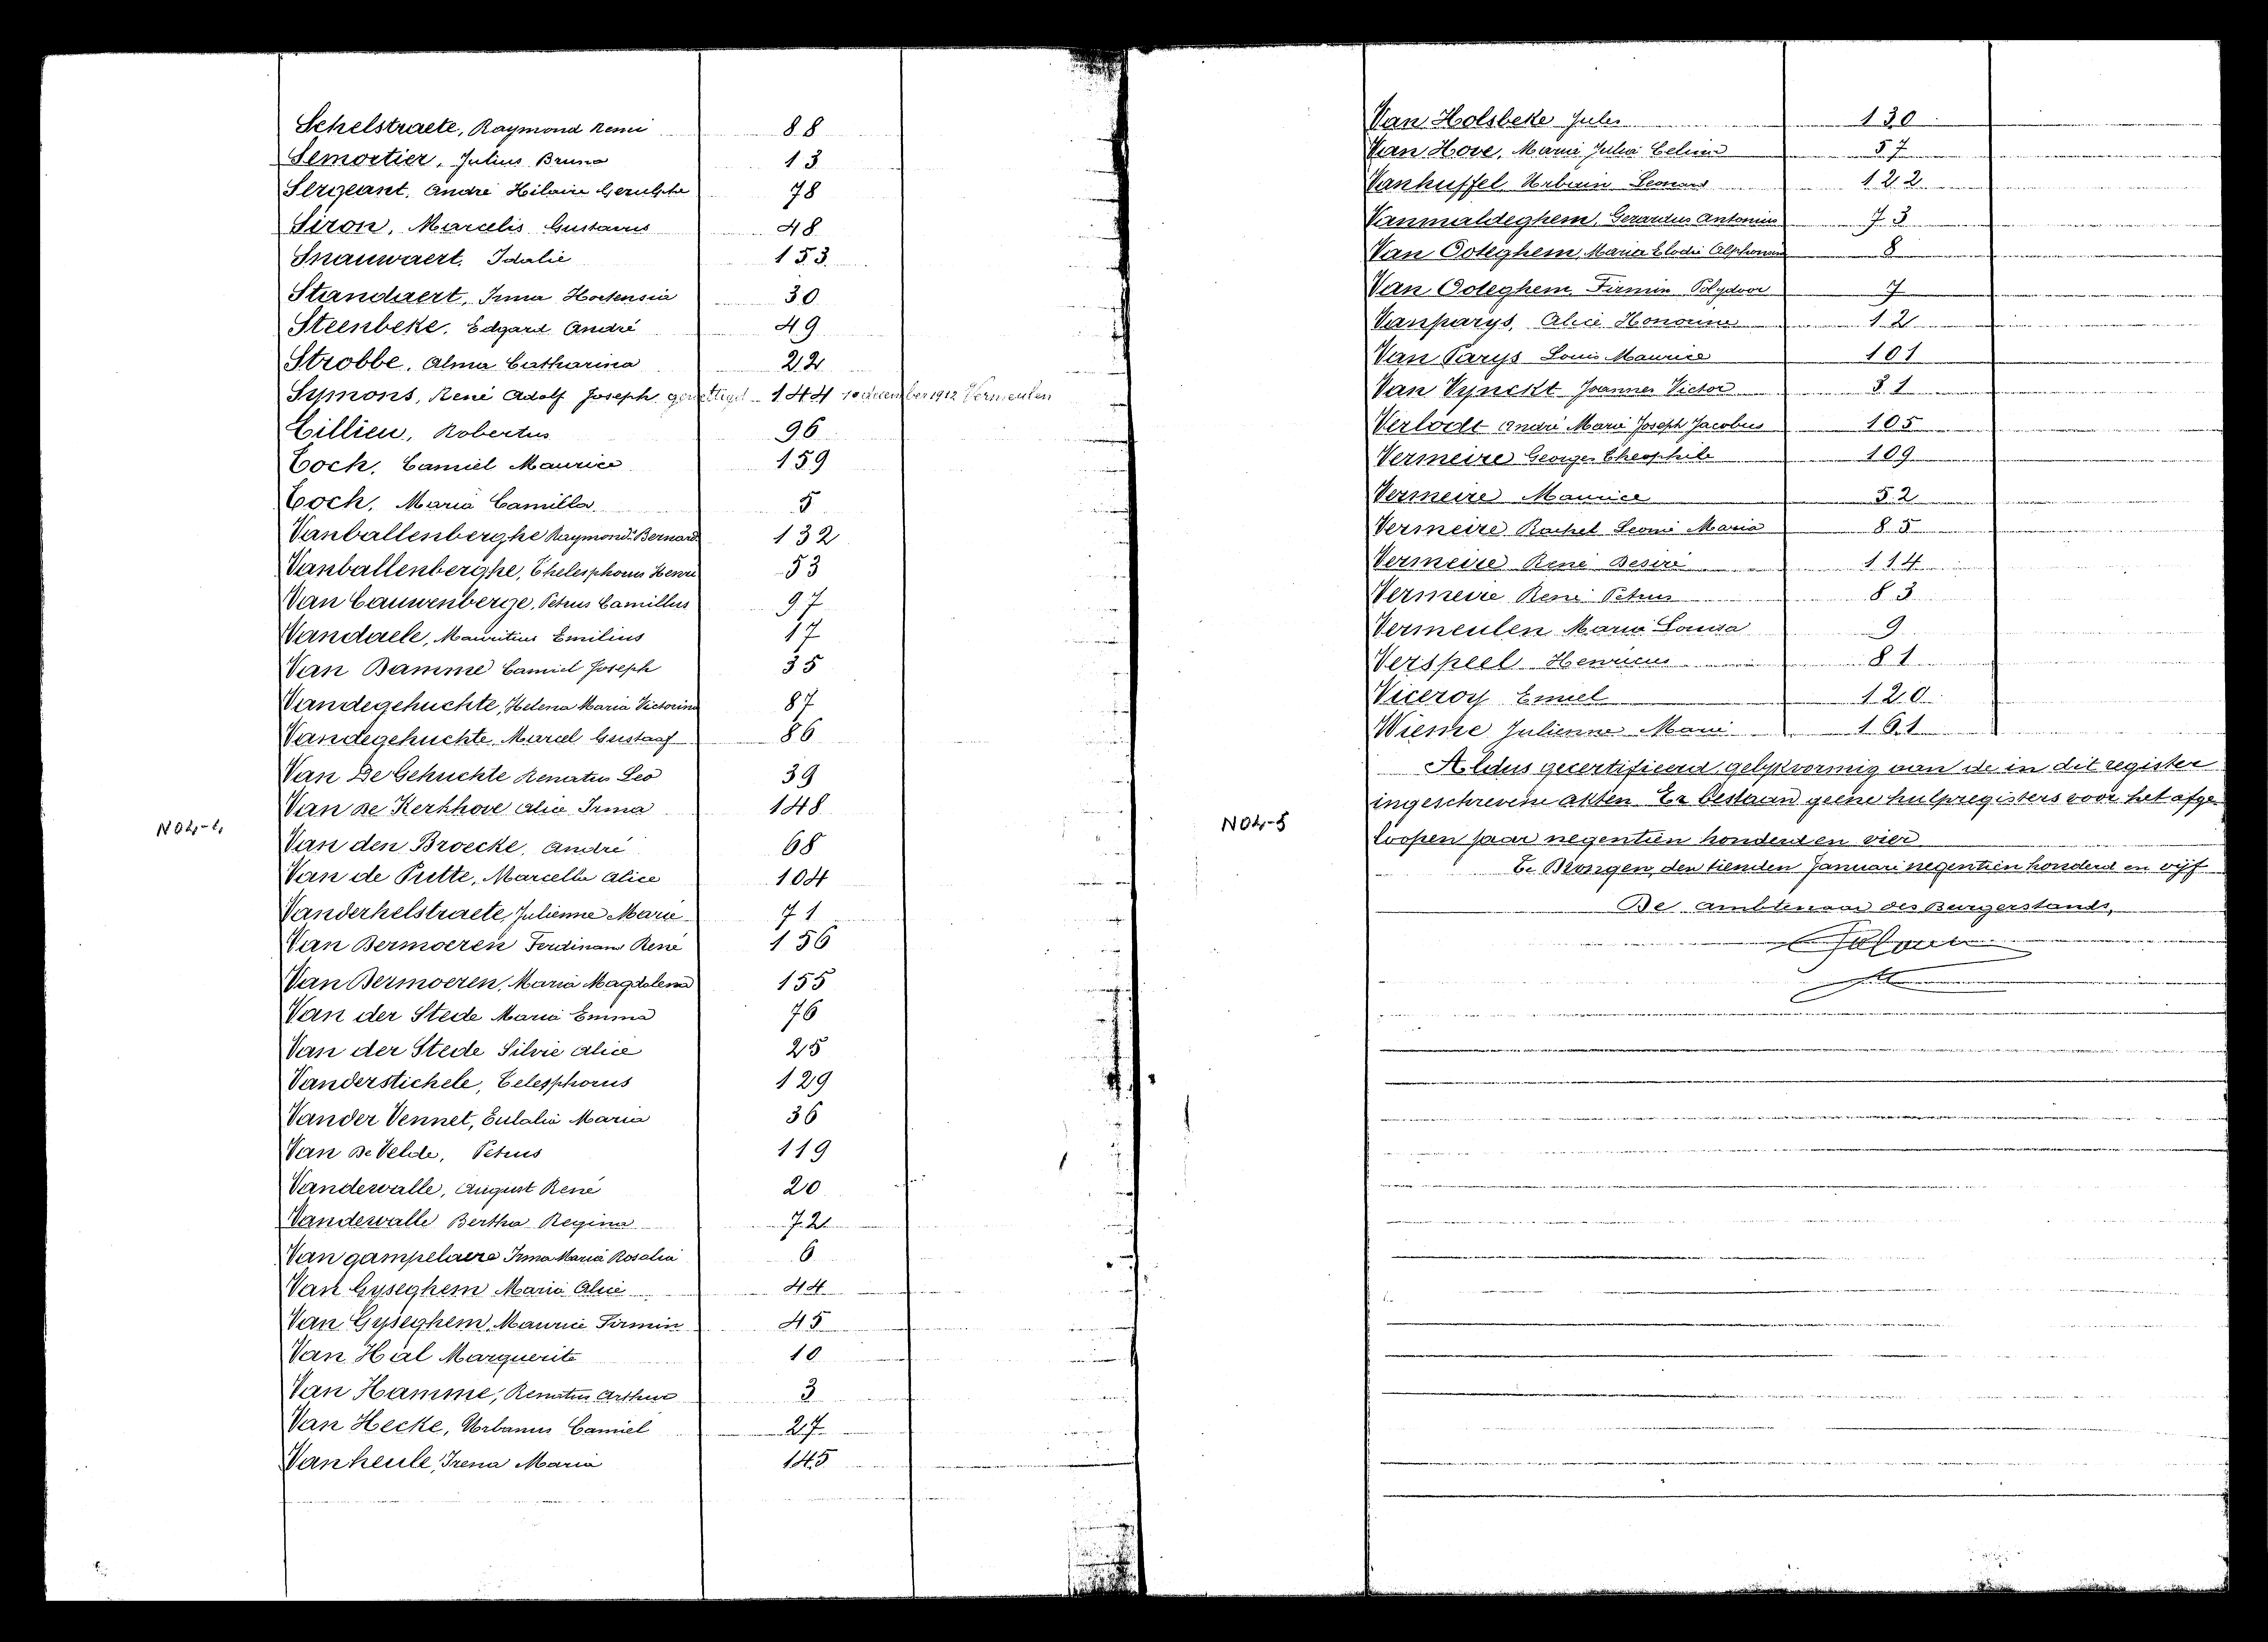 Schelstraete, Raymond Remi 88
Semortier, Julius Bruno 13
Sergeant, André Hilaire 78
Siron, Marcelis Gustavus 48
Snauwaert, Idalie 153
Standaert, Irma Hortensia 30
Steenbeke, Edgard André 49
Strobbe, Alma Catharina 22
Symons, René Adolf Joseph gewettigd 144 10 december 1912 Vermeulen
Tillieu, Robertus 96
Toch, Camiel Maurice 159
Toch, Maria Camilla 5
Vanballenberghe Raymond Bernard 132
Vanballenberghe, Thelesphorus Henri 53
Van Cauwenberge, Petrus Camillus 97
Vandaele, Mauritius Emilius 17
Van Damme Camiel Joseph 35
Vandegehuchte, Helena Maria Victorina 87
Vandegehuchte Marcel Gustaaf 86
Van De Gehuchte Renatus Leo 39
Van de Kerkhove Alice Irma 148
N04-4
Van den Broecke, André 68
Van de Putte, Marcella Alice 104
Vanderhelstraete, Julienne Marie 71
Van Dermoeren Ferdinand René 156
Van Dermoeren, Maria Magdalena 155
Van der Stede Maria Emma 76
Van der Stede Silvie Alice 25
Vanderstichele, Telesphorus 129
Vander Vennet, Eulalia Maria 36
Van de Velde, Petrus 119
Vandewalle, August René 20
Vandewalle Bertha Regina 72
Van gampelaere Irma Maria Rosalia 6
Van Gyseghem Maria Alice 44
Van Gyseghem, Maurice Firmin 45
Van Hal Marguerite 10
Van Hamme, Renatus Arthur 3
Van Hecke, Urbanus Camiel 27
Vanheule, Irena Maria 145
Van Holsbeke Jules 130
Van Hove, Marie Julia Celina 57
Vanhuffel Urbain Leonard 122
Vanmaldeghem, Gerardus Antonius 73
Van Ooteghem, Maria Elodie Alphonsine 8
Van Ooteghem Firmin Polydoor 7
Vanparys, Alice Honorine 12
Van Parys Louis Maurice 101
Van Vynckt Joannes Victor 31
Verlodt André Marie Joseph Jacobus 105
Vermeire Georges Theophile 109
Vermeire Maurice 52
Vermeire Rachel Leonie Maria 85
Vermeire René Desiré 114
Vermeire René Petrus 83
Vermeulen Maria Louisa 9
Verspeel Henricus 81
Viceroy Emiel 120
Wieme Julienne Marie 161
Aldus gecertifieerd gelykvormig aan de in dit register
N04-5
ingeschrevene akten Er bestaan geene hulpregisters voor het afge
loopen jaar negentien honderd en vier
Te Drongen, den tienden Januari negentien honderd en vijf
De Ambtenaar des Burgerstands,